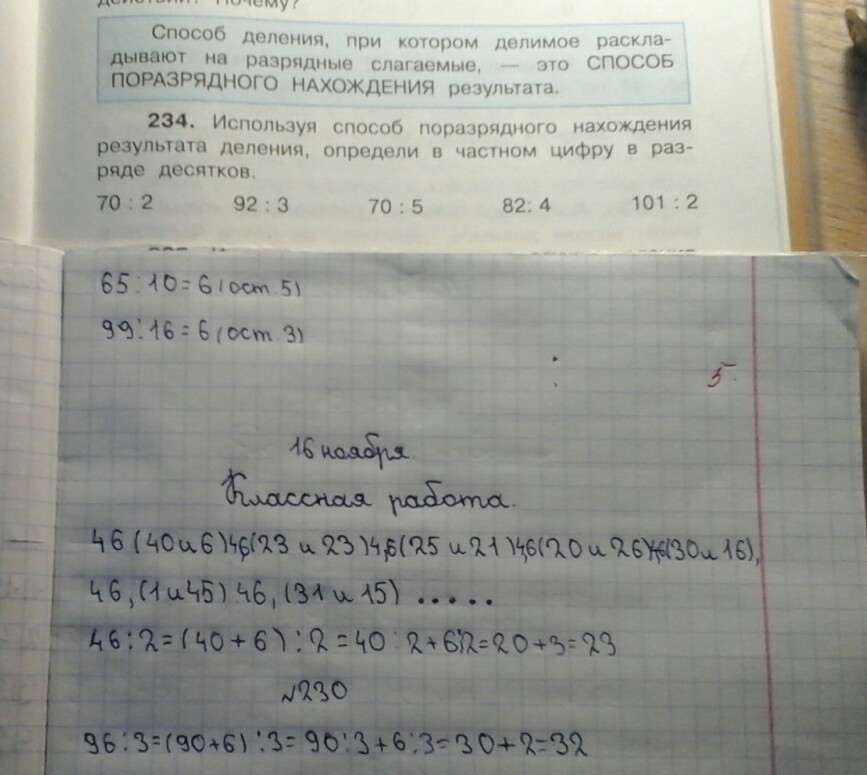 Способ деления, при котором делимое раскла-
дывают на разрядные слагаемые, — это СПОСОБ
ПОРАЗРЯДНОГО НАХОЖДЕНИЯ результата.
234. Используя способ поразрядного нахождения
результата деления, определи в частном цифру в раз-
ряде десятков.
70 : 2 92 : 3 70 : 5 82: 4 101 : 2
65:10=6(ост.5)
99:16=6(ост.3)
5.
16 ноября.
Классная работа.
46(40и6)46(23 и 23)46(25 и 21)46(20 и 26)46(30и 16),
46,(1и45) 46,(31 и 15) .....
46:2=(40+6):2=40:2+6:2=20+3=23
№230
96:3=(90+6):3=90:3+6:3=30+2=32